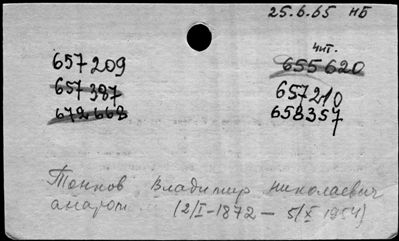 25.6.65 НБ
657209
657387
672668
чит.
655620
657210
658357
Тонков Владимир Николаевич
анатом (2/I-1872 — 5/X 1954)